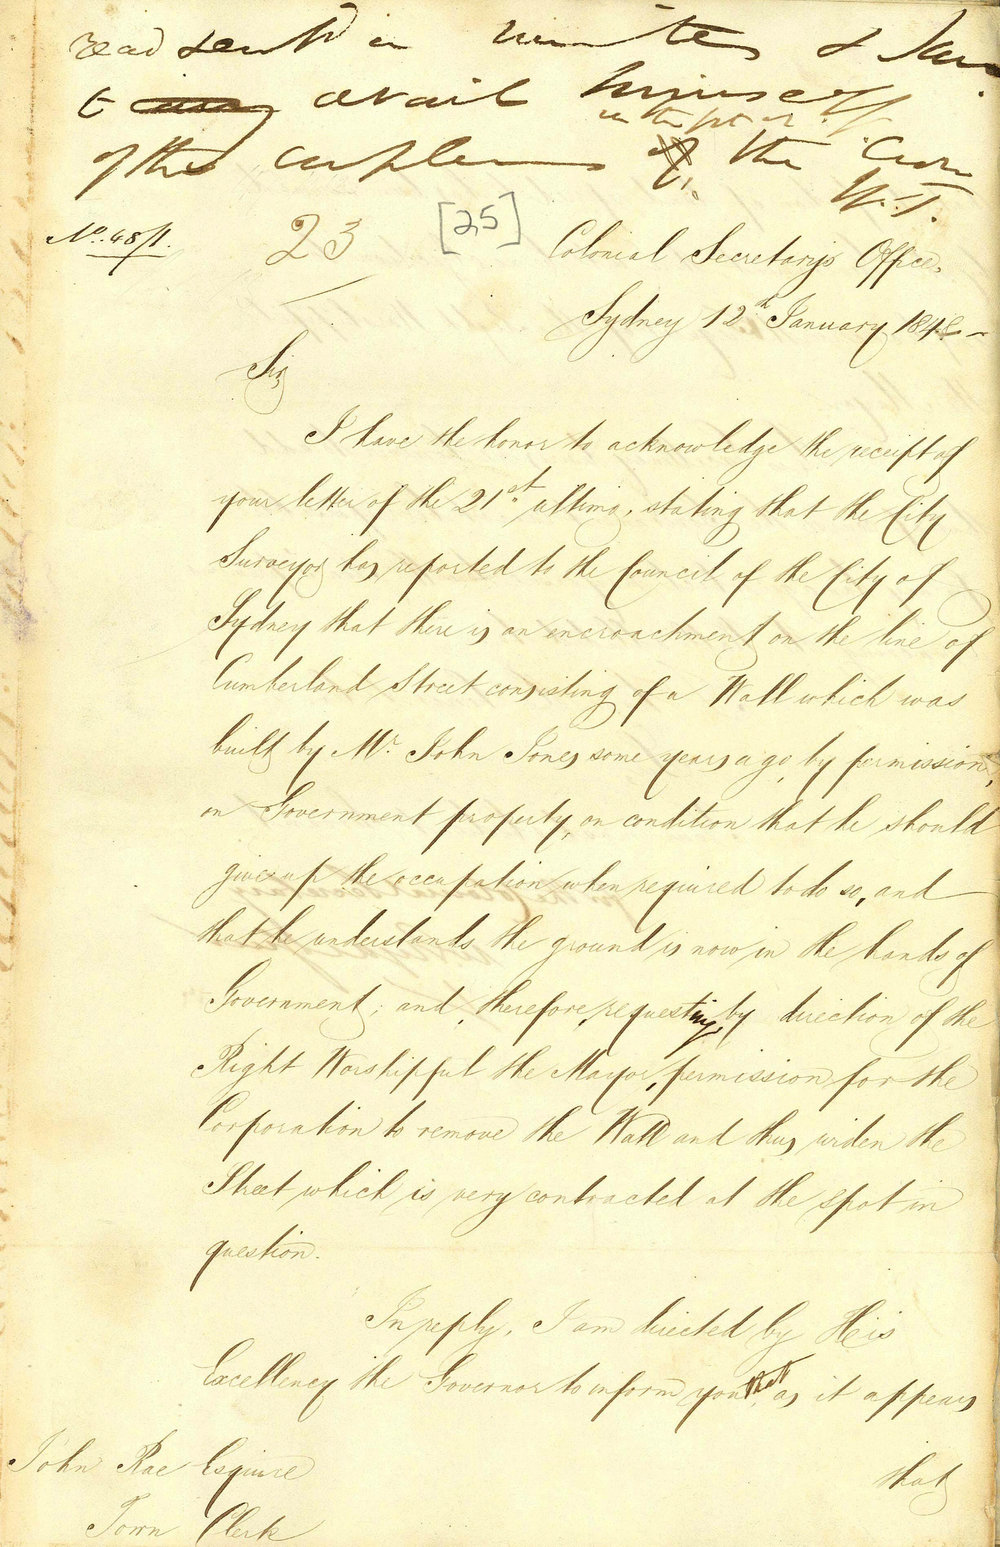 read
avail himself
of the the
No. 48/1. 23 [25] Colonial Secretary's Office,
Sydney 12th January 1848 -
Sir,
I have the honor to acknowledge the receipt of
your letter of the 21st ultimo, stating that the City
Surveyor has reported to the Council of the City of
Sydney that there is an encroachment on the line of
Cumberland Street consisting of a Wall which was
built by Mr. John Jones some years ago, by permission,
on Government property, on condition that he should
give up the occupation when required to do so, and
that he understands the ground is now in the hands of
Government; and, therefore, requesting, by direction of the
Right Worshipful the Mayor, permission for the
Corporation to remove the Wall and thus widen the
Street which is very contracted at the spot in
question.
In reply, I am directed by His
Excellency the Governor to inform you that, as it appears
that
John Rae Esquire
Town Clerk